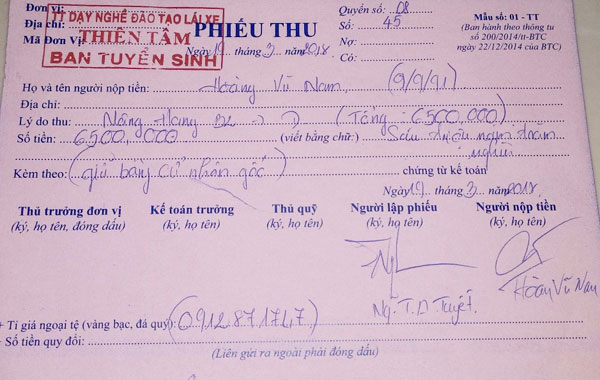 Đơn vị:
Địa chỉ:
Mã Đơn Vị:
TT DẠY NGHỀ ĐÀO TẠO LÁI XE
THIÊN TÂM
BAN TUYỂN SINH
PHIẾU THU
Ngày 19 tháng 3 năm 2018
Quyển số: 08
Số: 45
Nợ:
Có:
Mẫu số: 01 - TT
(Ban hành theo thông tư
số 200/2014/tt-BTC
ngày 22/12/2014 của BTC)
Họ và tên người nộp tiền: Hoàng Vũ Nam (9/9/91)
Địa chỉ:
Lý do thu: Nâng Hạng B2 -> D (Tổng: 6500,000)
Số tiền: 6500,000 (viết bằng chữ): Sáu triệu năm trăm
nghìn
Kèm theo: (giữ bằng cử nhân gốc) chứng từ kế toán
Ngày 19 tháng 3 năm 2018
Thủ trưởng đơn vị Kế toán trưởng Thủ quỹ Người lập phiếu Người nộp tiền
(ký, họ tên, đóng dấu) (ký, họ tên) (ký, họ tên) (ký, họ tên) (ký, họ tên)
Ng. T. D Tuyết. Hoàng Vũ Nam
+ Tỉ giá ngoại tệ (vàng bạc, đá quý): (0912.871747)
- Số tiền quy đổi:
(Liên gửi ra ngoài phải đóng dấu)